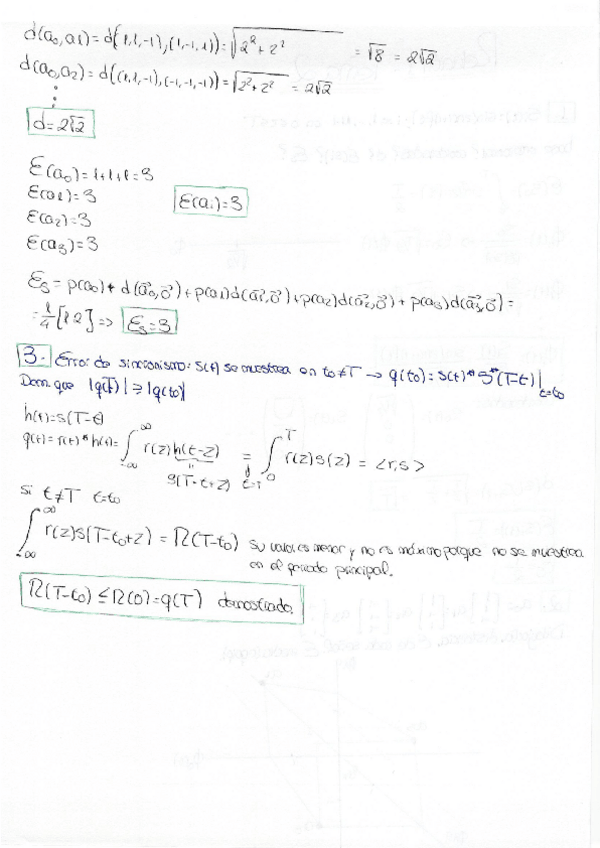 d(a₀,a₁)=d((1,1,-1),(1,-1,1))=√(2²+2²) = √8 = 2√2
d(a₀,a₂)=d((1,1,-1),(-1,-1,-1))=√(2²+2²) = 2√2
⋮
d=2√2
E(a₀)=1+1+1=3
E(a₁)=3 E(aᵢ)=3
E(a₂)=3
E(a₃)=3
Es = p(a₀)· d(a₀,0)+p(a₁)d(a₁,0)+p(a₂)d(a₂,0)+p(a₃)d(a₃,0)=
= 1/4 [12] => Es=3
3. Error de sincronismo: s(t) se muestrea en t₀≠T → q(t₀)= s(t)*s*(T-t)|t=t₀
Dem que |q(T)| ≥ |q(t₀)|
h(t)=s(T-t)
q(t)=r(t)*h(t)= ∫_{-∞}^{∞} r(z)h(t-z) = ∫_0^T r(z)s(z) = <r,s>
s(T-t+z) t=T
si t≠T t=t₀
∫_{-∞}^{∞} r(z)s(T-t₀+z) = R(T-t₀) su valor es menor y no es máximo porque no se muestrea
en el periodo principal.
R(T-t₀) ≤ R(0)=q(T) demostrado.